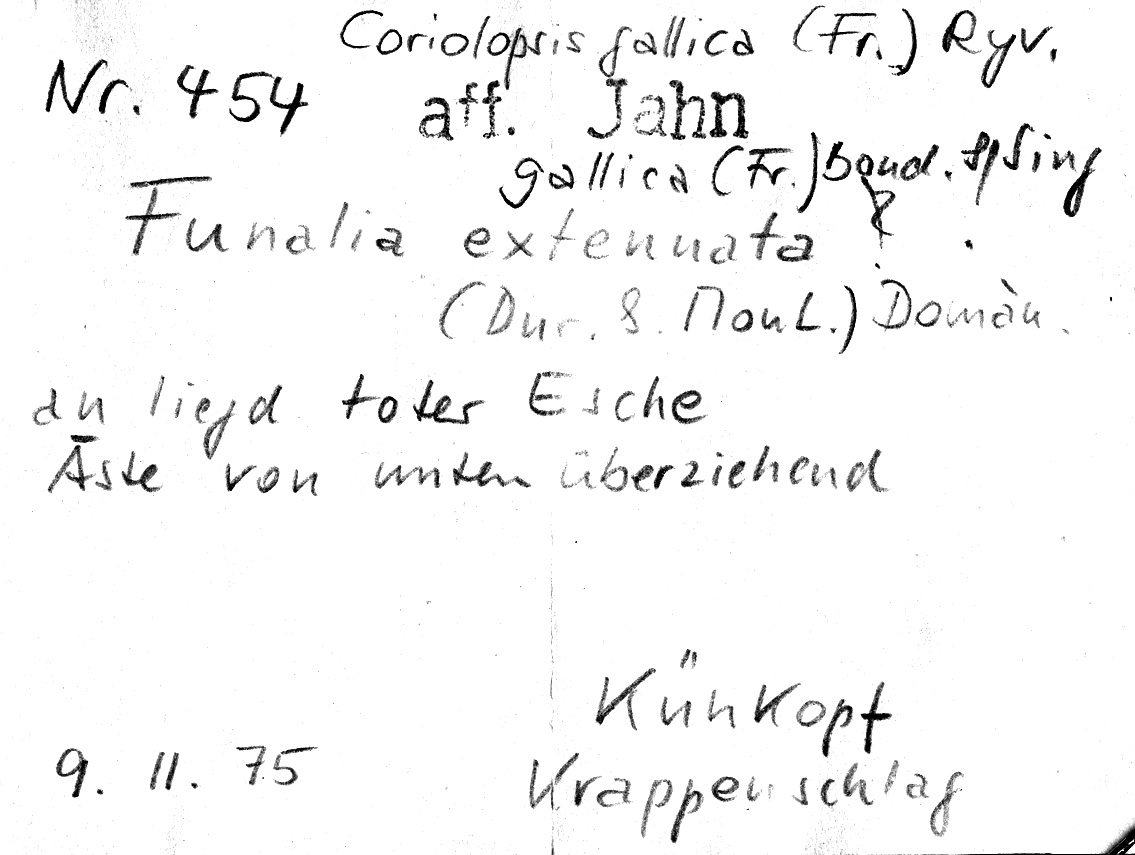 Coriolopsis gallica (Fr.) Ryv.
Nr. 454 aff. Jahn
gallica (Fr.) Bond. Sing
Funalia extenuata ?
(Dur. & Mont.) Domàn.
an liegd toter Esche
Äste von unten überziehend
Kühkopf
9. 11. 75 Krappenschlag